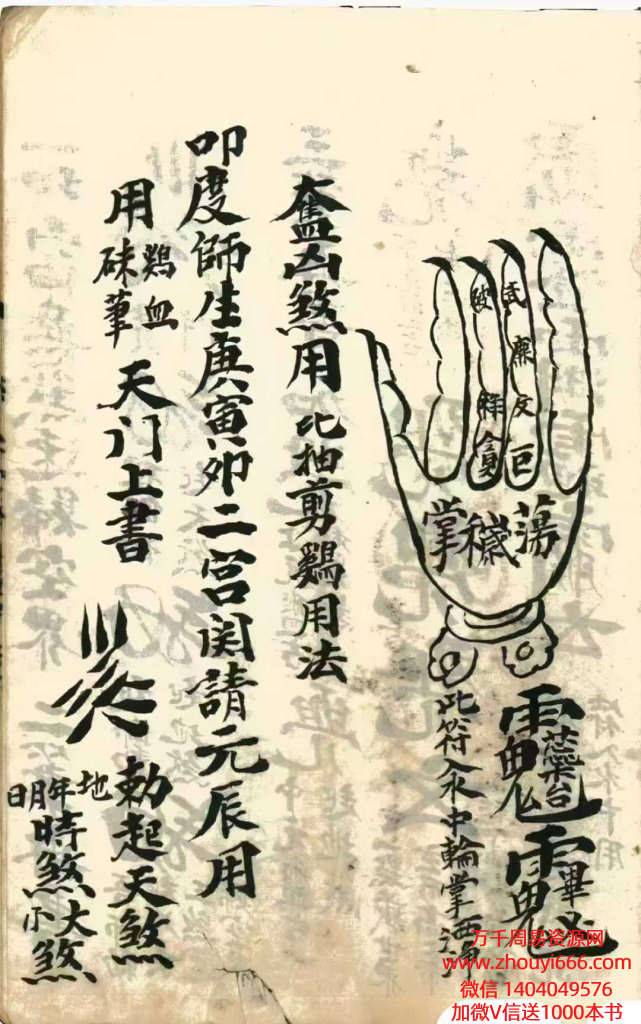 破 武
廉
祿 文
貪 巨
蕩穢掌
此符入水中輪掌洒淨
奩凶煞用 比抽剪鷄用法
叩度師生庚寅卯二宮関請元辰用
用鷄血硃筆天门上書
勅起天煞
地年月日時煞大小煞
万千周易资源网
www.zhouyi666.com
微信 1404049576
加微V信送1000本书